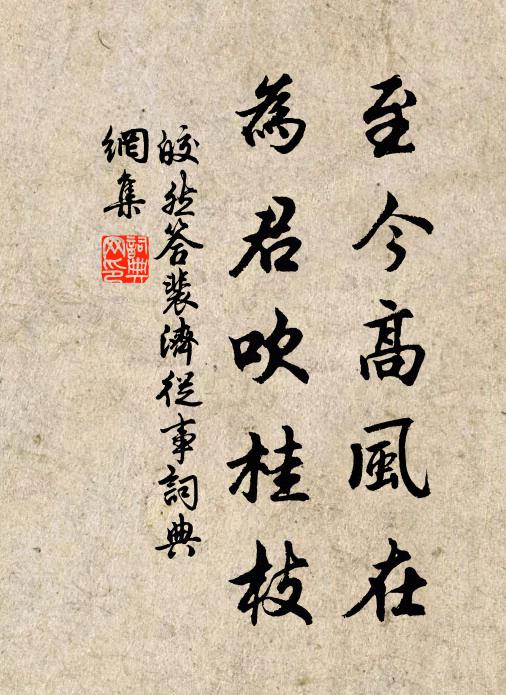 至今高風在
為君吹桂枝
皎然答裴濟從事詞典
網集
詞典
网印